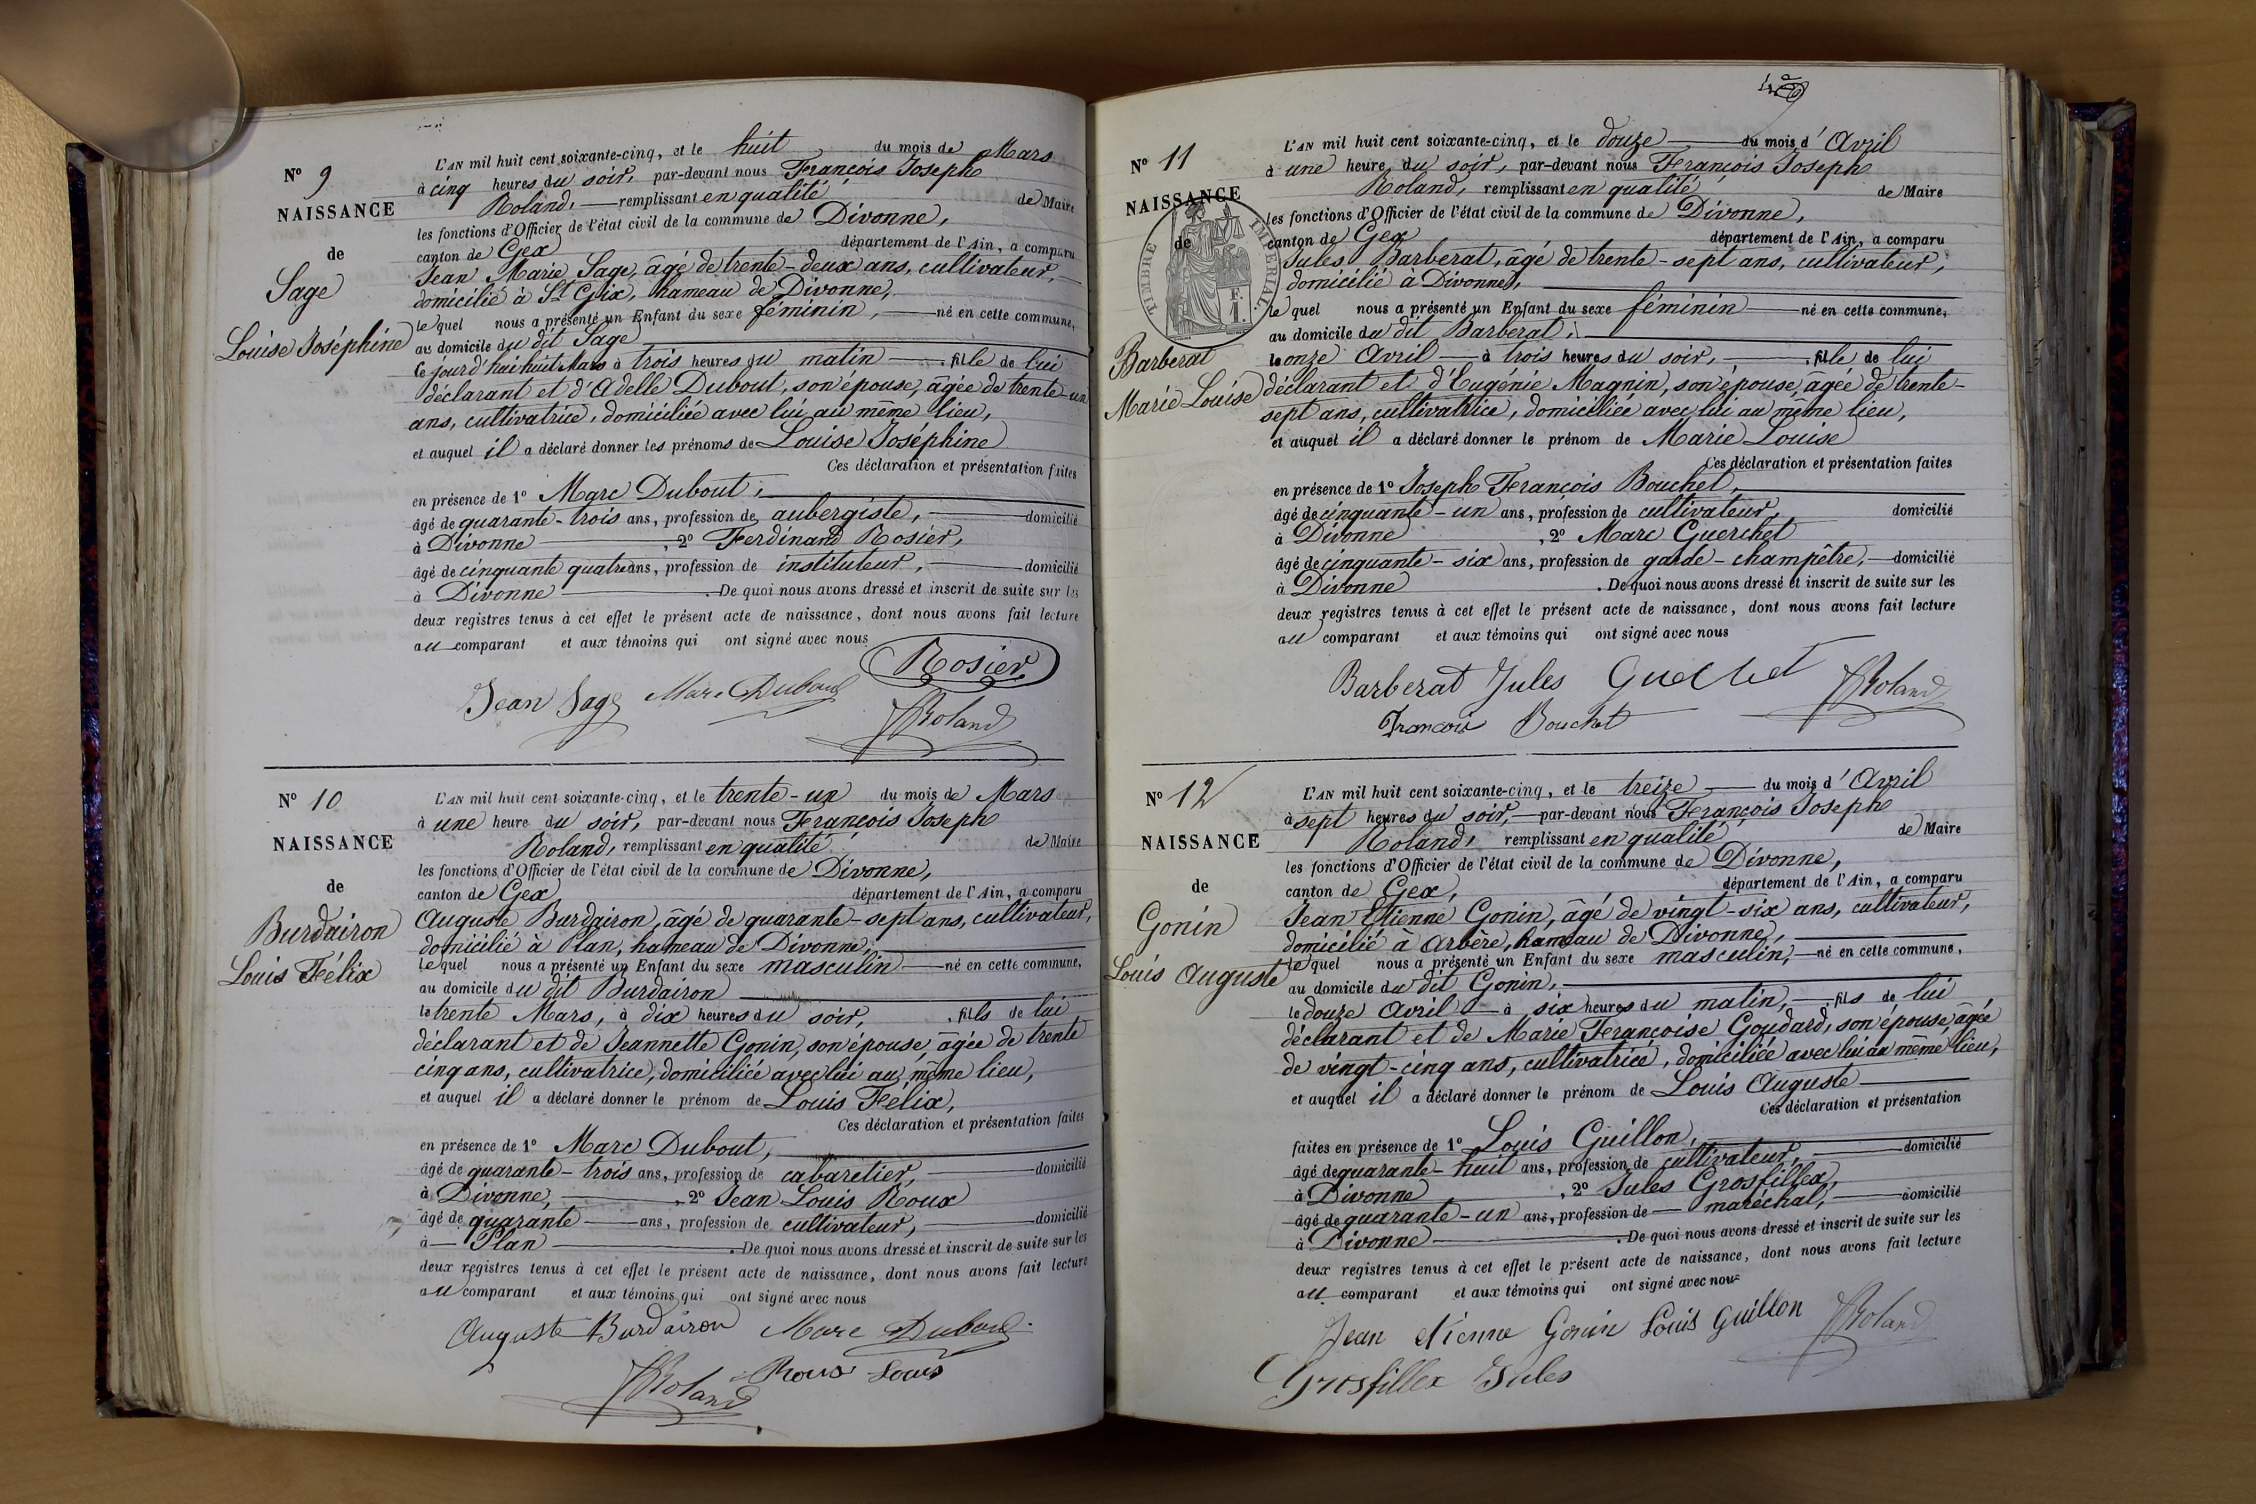 N° 9
NAISSANCE
de
Sage
Louise Joséphine
L'AN mil huit cent soixante-cinq, et le huit du mois de Mars
à cinq heures du soir, par-devant nous François Joseph
Roland, remplissant en qualité de Maire
les fonctions d'Officier de l'état civil de la commune de Divonne,
canton de Gex département de l'Ain, a comparu
Jean Marie Sage, âgé de trente-deux ans, cultivateur,
domicilié à St Gix, hameau de Divonne,
lequel nous a présenté un Enfant du sexe féminin, né en cette commune,
au domicile du dit Sage
le jourd'hui huit Mars à trois heures du matin, fille de lui
déclarant et d'Adelle Dubout, son épouse, âgée de trente-un
ans, cultivatrice, domiciliée avec lui au même lieu,
et auquel il a déclaré donner les prénoms de Louise Joséphine
Ces déclaration et présentation faites
en présence de 1° Marc Dubout,
âgé de quarante-trois ans, profession de aubergiste, domicilié
à Divonne, 2° Ferdinand Rosier,
âgé de cinquante quatre ans, profession de instituteur, domicilié
à Divonne. De quoi nous avons dressé et inscrit de suite sur les
deux registres tenus à cet effet le présent acte de naissance, dont nous avons fait lecture
au comparant et aux témoins qui ont signé avec nous
Rosier
Jean Sage Marc Dubout
JRoland
N° 10
NAISSANCE
de
Burdairon
Louis Félix
L'AN mil huit cent soixante-cinq, et le trente-un du mois de Mars
à une heure du soir, par-devant nous François Joseph
Roland, remplissant en qualité de Maire
les fonctions d'Officier de l'état civil de la commune de Divonne,
canton de Gex département de l'Ain, a comparu
Auguste Burdairon, âgé de quarante-sept ans, cultivateur,
domicilié à Plan, hameau de Divonne,
lequel nous a présenté un Enfant du sexe masculin né en cette commune,
au domicile du dit Burdairon
le trente Mars, à dix heures du soir, fils de lui
déclarant et de Jeannette Gonin, son épouse, âgée de trente
cinq ans, cultivatrice, domiciliée avec lui au même lieu,
et auquel il a déclaré donner le prénom de Louis Félix,
Ces déclaration et présentation faites
en présence de 1° Marc Dubout,
âgé de quarante-trois ans, profession de cabaretier, domicilié
à Divonne, 2° Jean Louis Roux
âgé de quarante ans, profession de cultivateur, domicilié
à Plan. De quoi nous avons dressé et inscrit de suite sur les
deux registres tenus à cet effet le présent acte de naissance, dont nous avons fait lecture
au comparant et aux témoins qui ont signé avec nous
Auguste Burdairon Marc Dubout
JRoland Roux Louis
N° 11
NAISSANCE
de
TIMBRE IMPERIAL.
1 F.
Barberat
Marie Louise
L'AN mil huit cent soixante-cinq, et le douze du mois d'Avril
à une heure du soir, par-devant nous François Joseph
Roland, remplissant en qualité de Maire
les fonctions d'Officier de l'état civil de la commune de Divonne,
canton de Gex département de l'Ain, a comparu
Jules Barberat, âgé de trente-sept ans, cultivateur,
domicilié à Divonne,
lequel nous a présenté un Enfant du sexe féminin né en cette commune,
au domicile du dit Barberat,
le onze Avril à trois heures du soir, fille de lui
déclarant et d'Eugénie Magnin, son épouse, âgée de trente-
sept ans, cultivatrice, domiciliée avec lui au même lieu,
et auquel il a déclaré donner le prénom de Marie Louise
Ces déclaration et présentation faites
en présence de 1° Joseph François Bouchet,
âgé de cinquante-un ans, profession de cultivateur, domicilié
à Divonne, 2° Marc Guerchet
âgé de cinquante-six ans, profession de garde-champêtre, domicilié
à Divonne. De quoi nous avons dressé et inscrit de suite sur les
deux registres tenus à cet effet le présent acte de naissance, dont nous avons fait lecture
au comparant et aux témoins qui ont signé avec nous
Barberat Jules Guerchet JRoland
François Bouchet
N° 12
NAISSANCE
de
Gonin
Louis Auguste
L'AN mil huit cent soixante-cinq, et le treize du mois d'Avril
à sept heures du soir, par-devant nous François Joseph
Roland, remplissant en qualité de Maire
les fonctions d'Officier de l'état civil de la commune de Divonne,
canton de Gex, département de l'Ain, a comparu
Jean Etienne Gonin, âgé de vingt-six ans, cultivateur,
domicilié à Arbère, hameau de Divonne,
lequel nous a présenté un Enfant du sexe masculin, né en cette commune,
au domicile du dit Gonin,
le douze Avril à six heures du matin, fils de lui
déclarant et de Marie Françoise Goudard, son épouse, âgée
de vingt-cinq ans, cultivatrice, domiciliée avec lui au même lieu,
et auquel il a déclaré donner le prénom de Louis Auguste
Ces déclaration et présentation
faites en présence de 1° Louis Guillon,
âgé de quarante-huit ans, profession de cultivateur, domicilié
à Divonne, 2° Jules Grosfillex,
âgé de quarante-un ans, profession de maréchal, domicilié
à Divonne. De quoi nous avons dressé et inscrit de suite sur les
deux registres tenus à cet effet le présent acte de naissance, dont nous avons fait lecture
au comparant et aux témoins qui ont signé avec nous
Jean etienne Gonin Louis Guillon JRoland
Grosfillex Jules